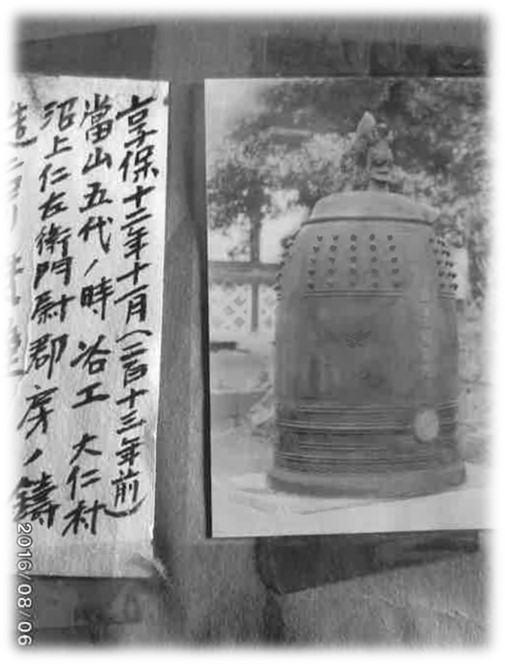 享保十二年十一月(二百十三年前)
當山五代ノ時 冶工 大仁村
沼上仁左衛門尉郡房ノ鑄
造
2016/08/06